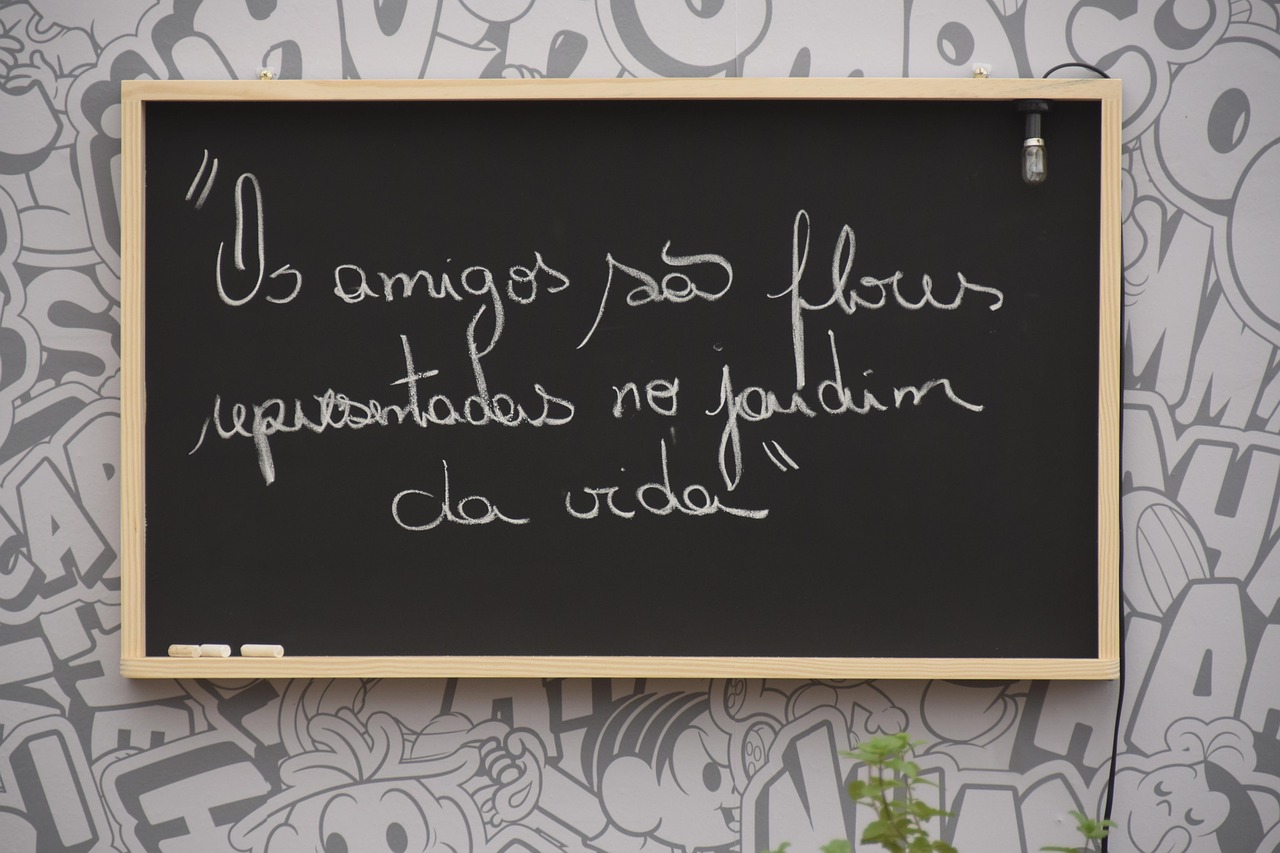 "Os amigos são flores
representadas no jardim
da vida"